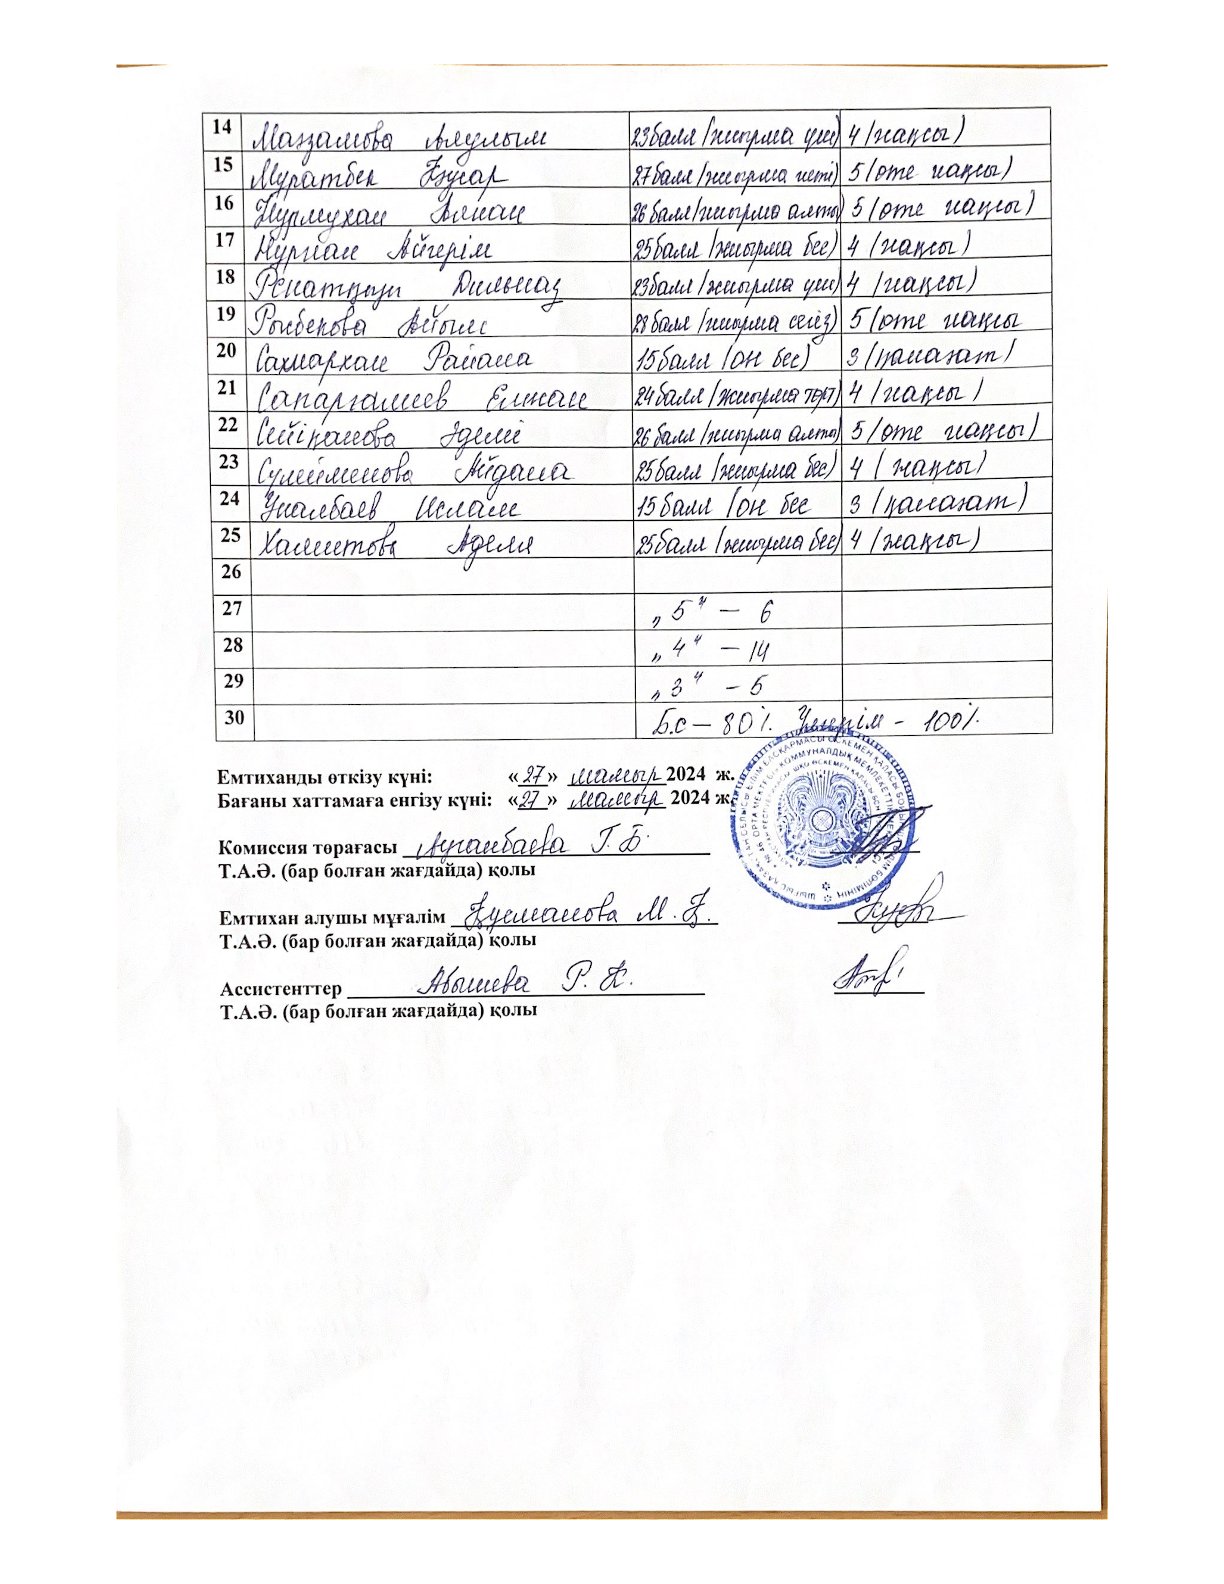 14 Маззамова Аяулым 23 балл (жиырма үш) 4 (жақсы)
15 Мұратбек Құсар 27 балл (жиырма жеті) 5 (өте жақсы)
16 Нурмухан Алихан 26 балл (жиырма алты) 5 (өте жақсы)
17 Нұрлан Айгерім 25 балл (жиырма бес) 4 (жақсы)
18 Ренатқызы Дильназ 23 балл (жиырма үш) 4 (жақсы)
19 Рысбекова Айым 28 балл (жиырма сегіз) 5 (өте жақсы
20 Сахиархан Раяна 15 балл (он бес) 3 (қанағат)
21 Сапаргалиев Елжан 24 балл (жиырма төрт) 4 (жақсы)
22 Сейіқанова Әделі 26 балл (жиырма алты) 5 (өте жақсы)
23 Сулейменова Айдана 25 балл (жиырма бес) 4 (жақсы)
24 Уналбаев Ислам 15 балл (он бес 3 (қанағат)
25 Хамитова Аделя 25 балл (жиырма бес) 4 (жақсы)
26
27 „5" — 6
28 „4" — 14
29 „3" — 5
30 Б.с — 80%. Үлгерім - 100%.
Емтиханды өткізу күні: «27» мамыр 2024 ж.
Бағаны хаттамаға енгізу күні: «27» мамыр 2024 ж.
Комиссия төрағасы Ауганбаева Г. Б.
Т.А.Ә. (бар болған жағдайда) қолы
Емтихан алушы мұғалім Құсманова М. Қ.
Т.А.Ә. (бар болған жағдайда) қолы
Ассистенттер Абышева Р. К.
Т.А.Ә. (бар болған жағдайда) қолы